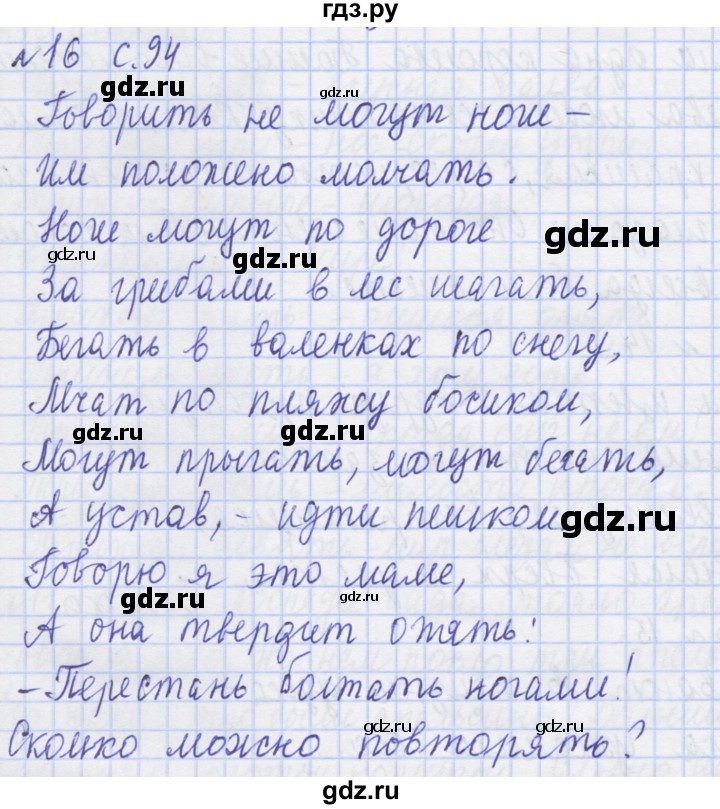 гдз.ру
№16 с.94
Говорить не могут ноги –
Им положено молчать.
Ноги могут по дороге
За грибами в лес шагать,
Бегать в валенках по снегу,
Мчат по пляжу босиком,
Могут прыгать, могут бегать,
А устав, – идти пешком
Говорю я это маме,
А она твердит опять:
– Перестань болтать ногами!
Сколько можно повторять?
gdz.ru
gdz.ru
gdz.ru
gdz.ru
gdz.ru
gdz.ru
gdz.ru
gdz.ru
gdz.ru
gdz.ru
gdz.ru
gdz.ru
gdz.ru
gdz.ru